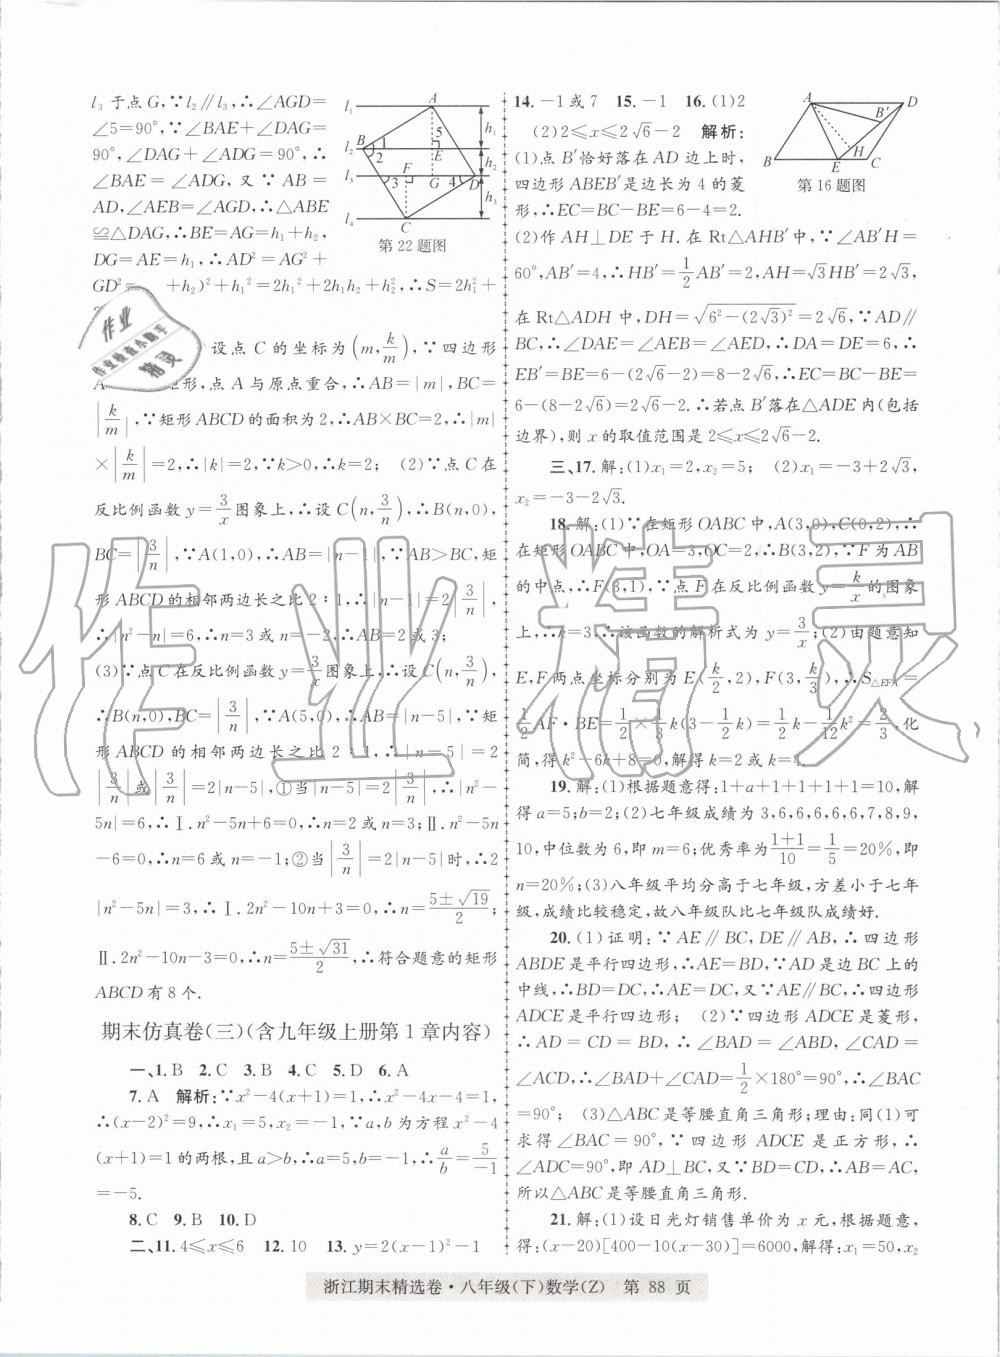 l₃于点G,∵l₂∥l₃,∴∠AGD=
∠5=90°,∵∠BAE+∠DAG=
90°,∠DAG+∠ADG=90°,∴
∠BAE=∠ADG,又∵AB=
AD,∠AEB=∠AGD,∴△ABE
≌△DAG,∴BE=AG=h₁+h₂,
DG=AE=h₁,∴AD²=AG²+
GD²= +h₂)²+h₁²=2h₁²+2h₁h₂+h₂²,∴S=2h₁²+
l₁ A h₁
l₂ B 1 2 5 E h₂
l₃ 3 F G 4 D h₃
l₄ C
第22题图
设点C的坐标为(m,k/m),∵四边形
形,点A与原点重合,∴AB=|m|,BC=
|k/m|,∵矩形ABCD的面积为2,∴AB×BC=2,∴|m|
×|k/m|=2,∴|k|=2,∵k>0,∴k=2; (2)∵点C在
反比例函数y=3/x图象上,∴设C(n,3/n),∴B(n,0),
BC=|3/n|,∵A(1,0),∴AB=|n-1|,∵AB>BC,矩
形ABCD的相邻两边长之比2∶1,∴|n-1|=2|3/n|,
∴|n²-n|=6,∴n=3或n=-2,∴AB=2或3;
(3)∵点C在反比例函数y=3/x图象上,∴设C(n,3/n),
∴B(n,0),BC=|3/n|,∵A(5,0),∴AB=|n-5|,∵矩
形ABCD的相邻两边长之比2∶1,∴|n-5|=2
|3/n|或|3/n|=2|n-5|,①当|n-5|=2|3/n|时,∴|n²-
5n|=6,∴Ⅰ.n²-5n+6=0,∴n=2或n=3;Ⅱ.n²-5n
-6=0,∴n=6或n=-1;②当|3/n|=2|n-5|时,∴2
|n²-5n|=3,∴Ⅰ.2n²-10n+3=0,∴n=(5±√19)/2;
Ⅱ.2n²-10n-3=0,∴n=(5±√31)/2,∴符合题意的矩形
ABCD有8个.
期末仿真卷(三)(含九年级上册第1章内容)
一、1.B 2.C 3.B 4.C 5.D 6.A
7.A 解析:∵x²-4(x+1)=1,∴x²-4x-4=1,
∴(x-2)²=9,∴x₁=5,x₂=-1,∵a,b为方程x²-4
(x+1)=1的两根,且a>b,∴a=5,b=-1,∴a/b=5/-1
=-5.
8.C 9.B 10.D
二、11.4≤x≤6 12.10 13.y=2(x-1)²-1
14.-1或7 15.-1 16.(1)2
(2)2≤x≤2√6-2 解析:
(1)点B′恰好落在AD边上时,
四边形ABEB′是边长为4的菱
形,∴EC=BC-BE=6-4=2.
A D B′ H B E C
第16题图
(2)作AH⊥DE于H.在Rt△AHB′中,∵∠AB′H=
60°,AB′=4,∴HB′=1/2AB′=2,AH=√3HB′=2√3,
在Rt△ADH中,DH=√(6²-(2√3)²)=2√6,∵AD∥
BC,∴∠DAE=∠AEB=∠AED,∴DA=DE=6,∴
EB′=BE=6-(2√6-2)=8-2√6,∴EC=BC-BE=
6-(8-2√6)=2√6-2.∴若点B′落在△ADE内(包括
边界),则x的取值范围是2≤x≤2√6-2.
三、17.解:(1)x₁=2,x₂=5; (2)x₁=-3+2√3,
x₂=-3-2√3.
18.解:(1)∵在矩形OABC中,A(3,0),C(0,2),∴
在矩形OABC中,OA=3,OC=2,∴B(3,2),∵F为AB
的中点,∴F(3,1),∵点F在反比例函数y=k/x的图象
上,∴k=3,∴该函数的解析式为y=3/x;(2)由题意知
E,F两点坐标分别为E(k/2,2),F(3,k/3),∴S△EFA=
1/2AF·BE=1/2×1/3k(3-1/2k)=1/2k-1/12k²=2/3,化
简,得k²-6k+8=0,解得k=2或k=4.
19.解:(1)根据题意得:1+a+1+1+1+1=10,解
得a=5;b=2;(2)七年级成绩为3,6,6,6,6,6,7,8,9,
10,中位数为6,即m=6;优秀率为(1+1)/10=1/5=20%,即
n=20%;(3)八年级平均分高于七年级,方差小于七年
级,成绩比较稳定,故八年级队比七年级队成绩好.
20.(1)证明:∵AE∥BC,DE∥AB,∴四边形
ABDE是平行四边形,∴AE=BD,∵AD是边BC上的
中线,∴BD=DC,∴AE=DC,又∵AE∥BC,∴四边形
ADCE是平行四边形; (2)∵四边形ADCE是菱形,
∴AD=CD=BD,∴∠BAD=∠ABD,∠CAD=
∠ACD,∴∠BAD+∠CAD=1/2×180°=90°,∴∠BAC
=90°; (3)△ABC是等腰直角三角形;理由:同(1)可
求得∠BAC=90°,∵四边形ADCE是正方形,∴
∠ADC=90°,即AD⊥BC,又∵BD=CD,∴AB=AC,
所以△ABC是等腰直角三角形.
21.解:(1)设日光灯销售单价为x元,根据题意,
得:(x-20)[400-10(x-30)]=6000,解得:x₁=50,x₂
浙江期末精选卷·八年级(下)数学(Z) 第88页
作业精灵
作业
作业检查小助手
精灵